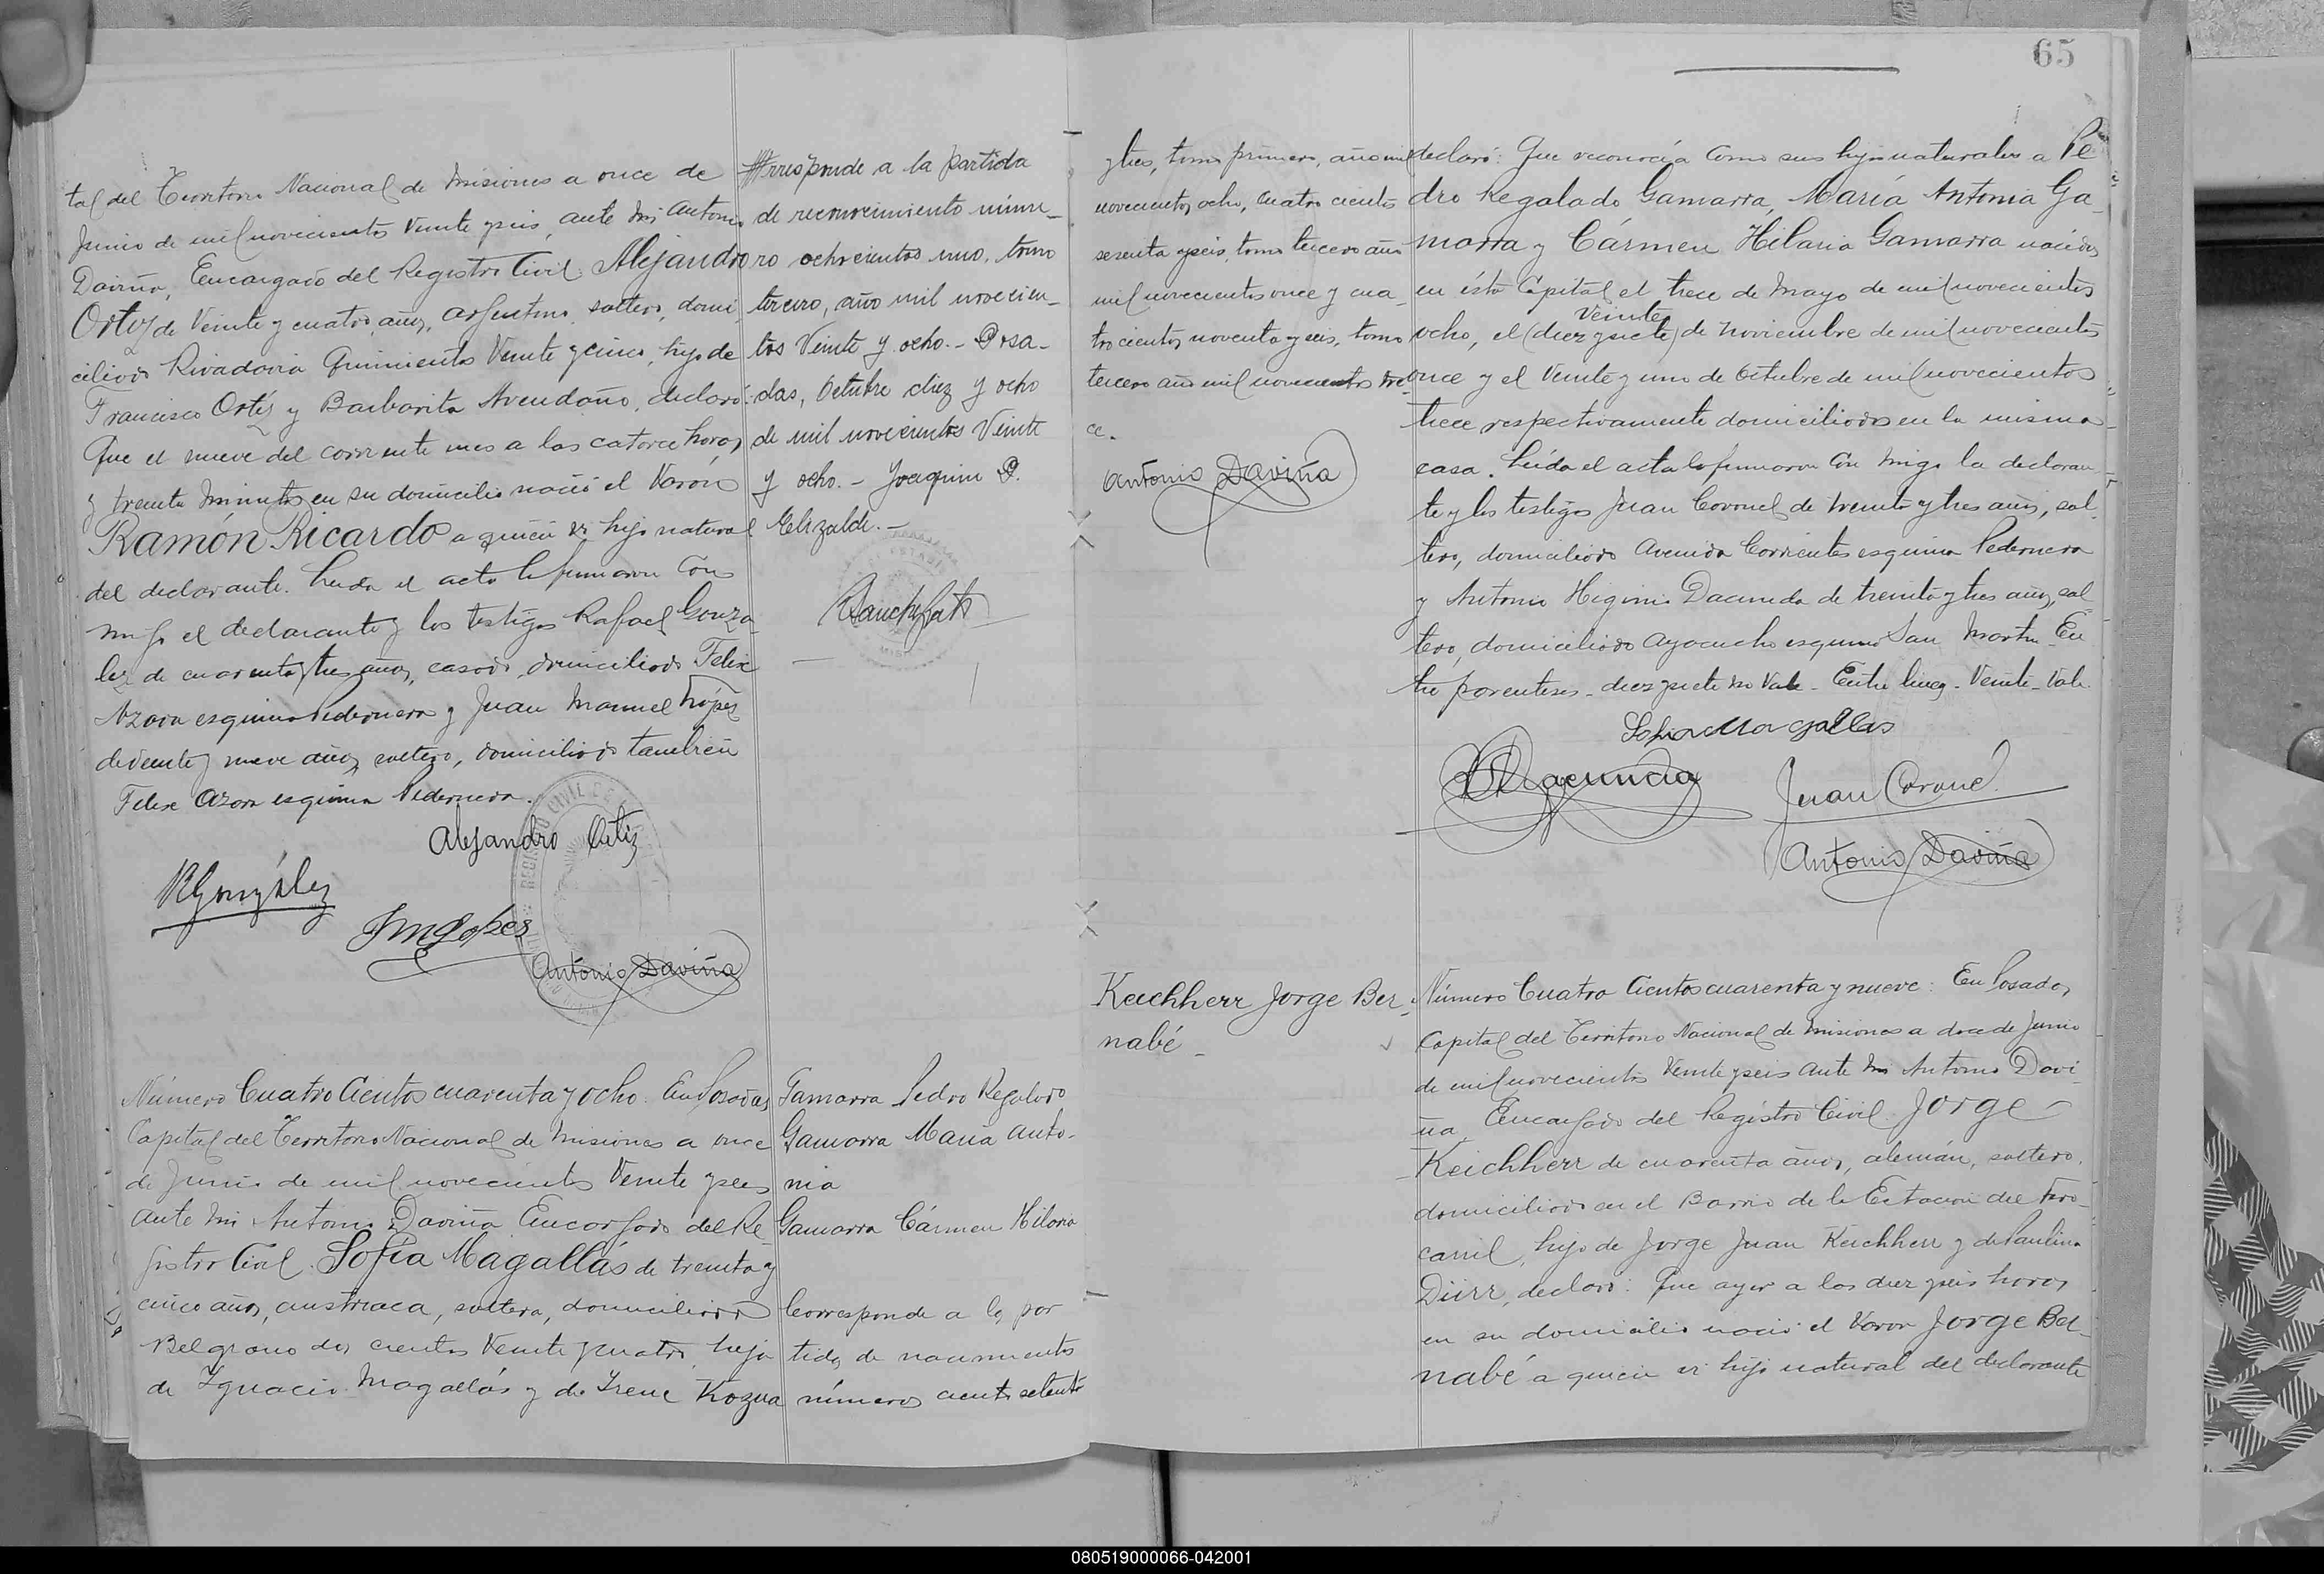 65
tal del Territorio Nacional de Misiones a once de
Junio de mil novecientos Veinte y seis, ante mi Antonio
Daviña, Encargado del Registro Civil: Alejandro
Ortiz de Veinte y cuatro años, argentino, soltero, domi-
ciliado Rivadavia quinientos Veinte y cinco, hijo de
Francisco Ortíz y Barbarita Avendaño, declaró:
Que el nueve del corriente mes a las catorce horas
y treinta minutos en su domicilio nació el Varón
Ramón Ricardo a quien es hijo natural
del declarante. Leida el acta la firmaron con
migo el declarante y los testigos Rafael Gonza-
lez de cuarenta y tres años, casado, domiciliado Felix
Azara esquina Pedernera y Juan Manuel López
de veinte y nueve años, soltero, domiciliado tambien
Felix Azara esquina Pedernera.
Alejandro Ortiz
R González
J M Lopez
Antonio Daviña
rresponde a la partida
de reconocimiento núme-
ro ochocientos uno, tomo
tercero, año mil novecien-
tos Veinte y ocho. - Posa-
das, Octubre diez y ocho
de mil novecientos Veinte
y ocho. - Joaquin
Elizalde. -
Número Cuatro Cientos cuarenta y ocho: En Posadas
Capital del Territorio Nacional de Misiones a once
de Junio de mil novecientos Veinte y seis
ante mi Antonio Daviña Encargado del Re
gistro Civil: Sofía Magallás de treinta y
cinco años, austriaca, soltera, domiciliada
Belgrano dos cientos Veinte y cuatro, hija
de Ygnacio Magallás y de Irene Kozua
Gamarra Pedro Regalado
Gamarra María Anto-
nia
Gamarra Cármen Hilaria
Corresponde a las par
tidas de nacimientos
números ciento setenta
y tres, tomo primero, año mil
novecientos ocho, cuatro cientos
sesenta y seis, tomo tercero año
mil novecientos once y cua-
trocientos noventa y seis, tomo
tercero año mil novecientos tre-
ce.
Antonio Daviña
declaró: Que reconocía como sus hijos naturales a Pe
dro Regalado Gamarra, María Antonia Ga-
marra y Cármen Hilaria Gamarra nacidos
en ésta Capital el trece de Mayo de mil novecientos
Veinte
ocho, el (diez y siete) de Noviembre de mil novecientos
once y el Veinte y uno de Octubre de mil novecientos
trece respectivamente domiciliados en la misma
casa. Leída el acta la firmaron con migo la declaran
te y los testigos Juan Coronel de treinta y tres años, sol
tero, domiciliado Avenida Corrientes esquina Pedernera
y Antonio Higinio Dacunda de treinta y tres años, sol
tero, domiciliado Ayacucho esquina San Martin. En
tre parentesis - diez y siete no Vale - Entre lineas - Veinte - Vale.
Sofia Magallas
Juan Coronel
Antonio Daviña
Keichherr Jorge Ber-
nabé -
Número Cuatro Cientos cuarenta y nueve: En Posadas,
Capital del Territorio Nacional de Misiones a doce de Junio
de mil novecientos Veinte y seis ante mi Antonio Davi-
ña Encargado del Registro Civil: Jorge
Keichherr de cuarenta años, alemán, soltero,
domiciliado en el Barrio de la Estacion del Ferro-
carril, hijo de Jorge Juan Keichherr y de Paulina
Dürr, declaró: Que ayer a las diez y seis horas
en su domicilio nació el Varon Jorge Ber-
nabé a quien es hijo natural del declarante
080519000066-042001